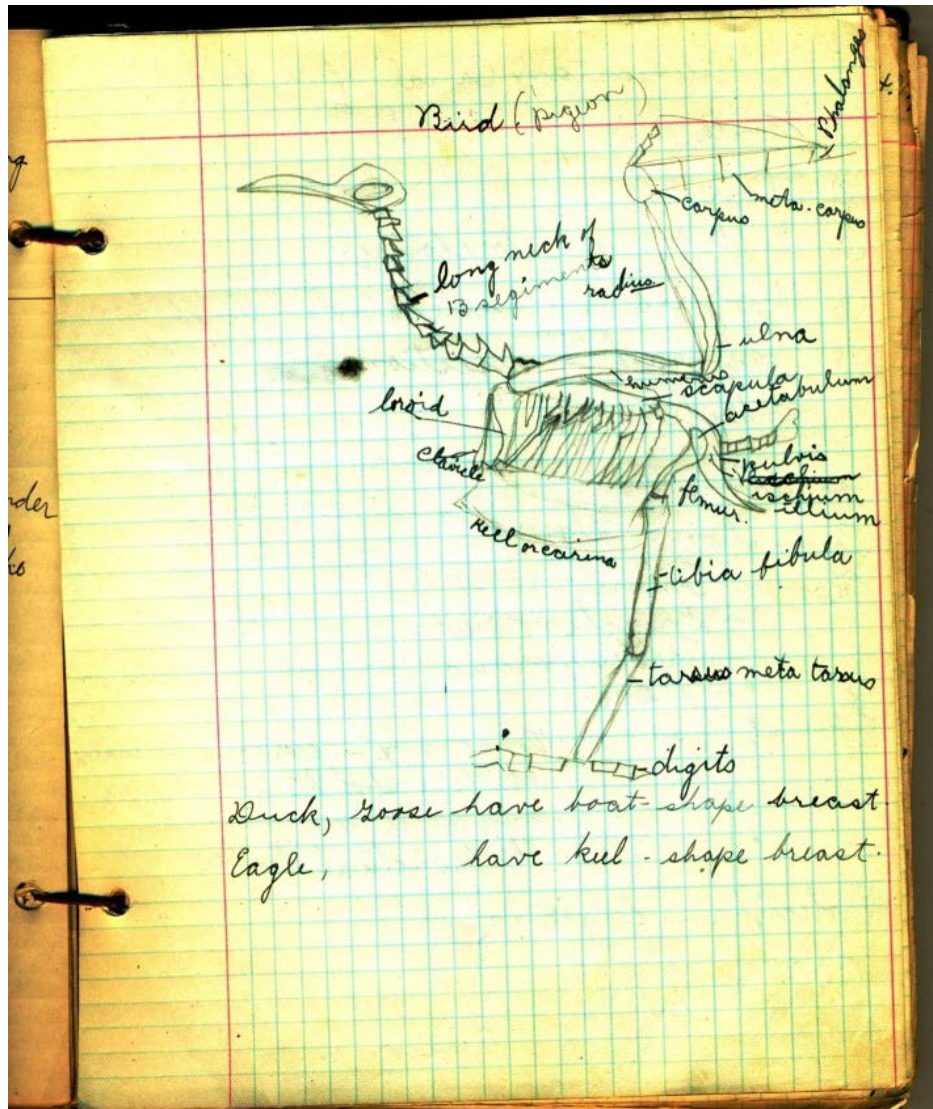 Bird (pigeon)
Phalanges
carpus
meta-carpus
long neck of
13 segiments
radius
ulna
humerus
scapula
acetabulum
loroid
clavicle
pulvis
ischium
illium
femur.
Keel or carina
tibia fibula
tarsus meta tarsus
digits
Duck, goose have boat-shape breast.
Eagle, have keel-shape breast.